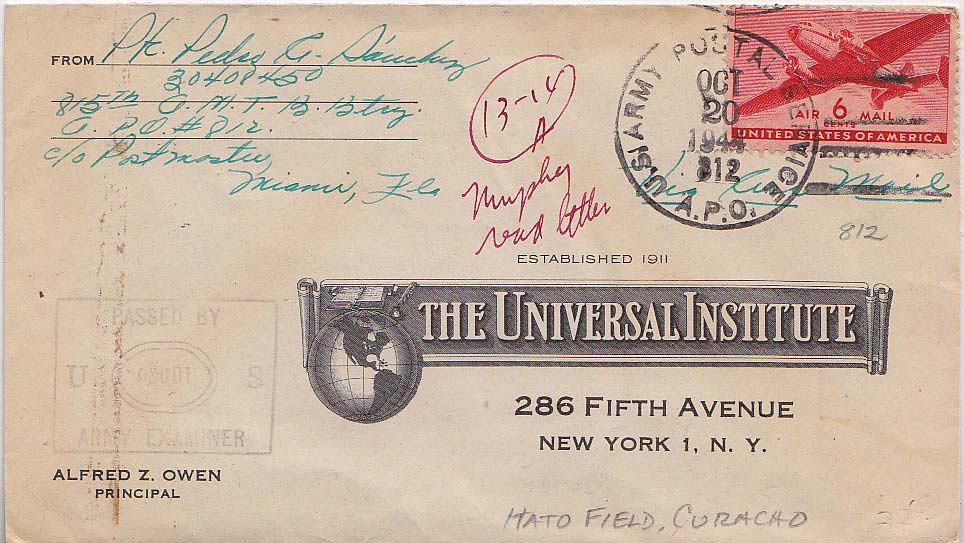 FROM Pvt. Pedro A. Sánchez
30408450
815th A. M. T. B. Btry.
A. P.O. # 812.
c/o Postmaster,
Miami, Fla
13-14
A
Murphey
read letter
U.S. ARMY POSTAL SERVICE
OCT
20
1944
812
A.P.O.
AIR 6 MAIL
CENTS
UNITED STATES OF AMERICA
Via Air Mail
812
ESTABLISHED 1911
THE UNIVERSAL INSTITUTE
286 FIFTH AVENUE
NEW YORK 1, N. Y.
PASSED BY
U 09001 S
ARMY EXAMINER
ALFRED Z. OWEN
PRINCIPAL
HATO FIELD, CURACAO